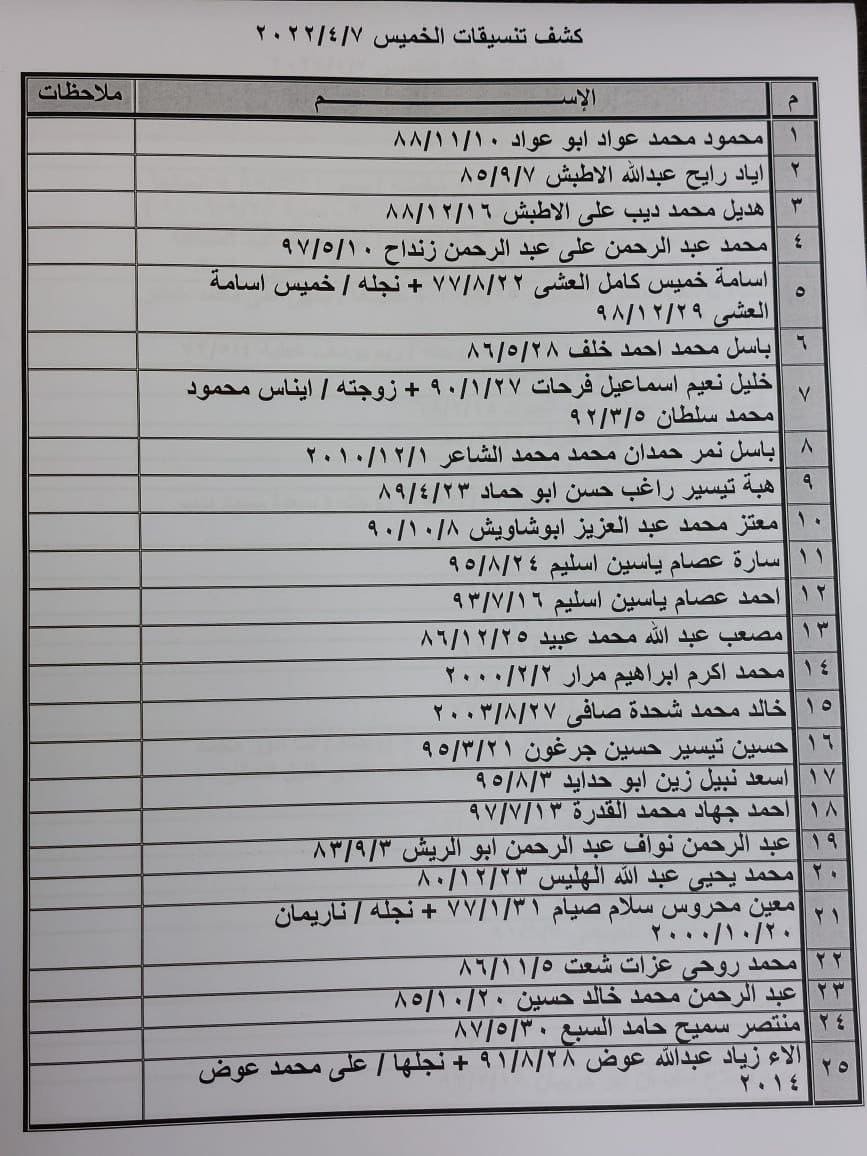 كشف تنسيقات الخميس ٢٠٢٢/٤/٧
م الإســــــــم ملاحظات
١ محمود محمد عواد ابو عواد ٨٨/١١/١٠
٢ اياد رايح عبدالله الاطبش ٨٥/٩/٧
٣ هديل محمد ديب على الاطبش ٨٨/١٢/١٦
٤ محمد عبد الرحمن على عبد الرحمن زنداح ٩٧/٥/١٠
٥ اسامة خميس كامل العشى ٧٧/٨/٢٢ + نجله / خميس اسامة
العشى ٩٨/١٢/٢٩
٦ باسل محمد احمد خلف ٨٦/٥/٢٨
٧ خليل نعيم اسماعيل فرحات ٩٠/١/٢٧ + زوجته / ايناس محمود
محمد سلطان ٩٢/٣/٥
٨ باسل نمر حمدان محمد محمد الشاعر ٢٠١٠/١٢/١
٩ هبة تيسير راغب حسن ابو حماد ٨٩/٤/٢٣
١٠ معتز محمد عبد العزيز ابوشاويش ٩٠/١٠/٨
١١ سارة عصام ياسين اسليم ٩٥/٨/٢٤
١٢ احمد عصام ياسين اسليم ٩٣/٧/١٦
١٣ مصعب عبد الله محمد عبيد ٨٦/١٢/٢٥
١٤ محمد اكرم ابراهيم مرار ٢٠٠٠/٢/٢
١٥ خالد محمد شحدة صافى ٢٠٠٣/٨/٢٧
١٦ حسين تيسير حسين جرغون ٩٥/٣/٢١
١٧ اسعد نبيل زين ابو حدايد ٩٥/٨/٣
١٨ احمد جهاد محمد القدرة ٩٧/٧/١٣
١٩ عبد الرحمن نواف عبد الرحمن ابو الريش ٨٣/٩/٣
٢٠ محمد يحيى عبد الله الهليس ٨٠/١٢/٢٣
٢١ معين محروس سلام صيام ٧٧/١/٣١ + نجله / ناريمان
٢٠٠٠/١٠/٢٠
٢٢ محمد روحى عزات شعت ٨٦/١١/٥
٢٣ عبد الرحمن محمد خالد حسين ٨٥/١٠/٢٠
٢٤ منتصر سميح حامد السبع ٨٧/٥/٣٠
٢٥ الاء زياد عبدالله عوض ٩١/٨/٢٨ + نجلها / على محمد عوض
٢٠١٤